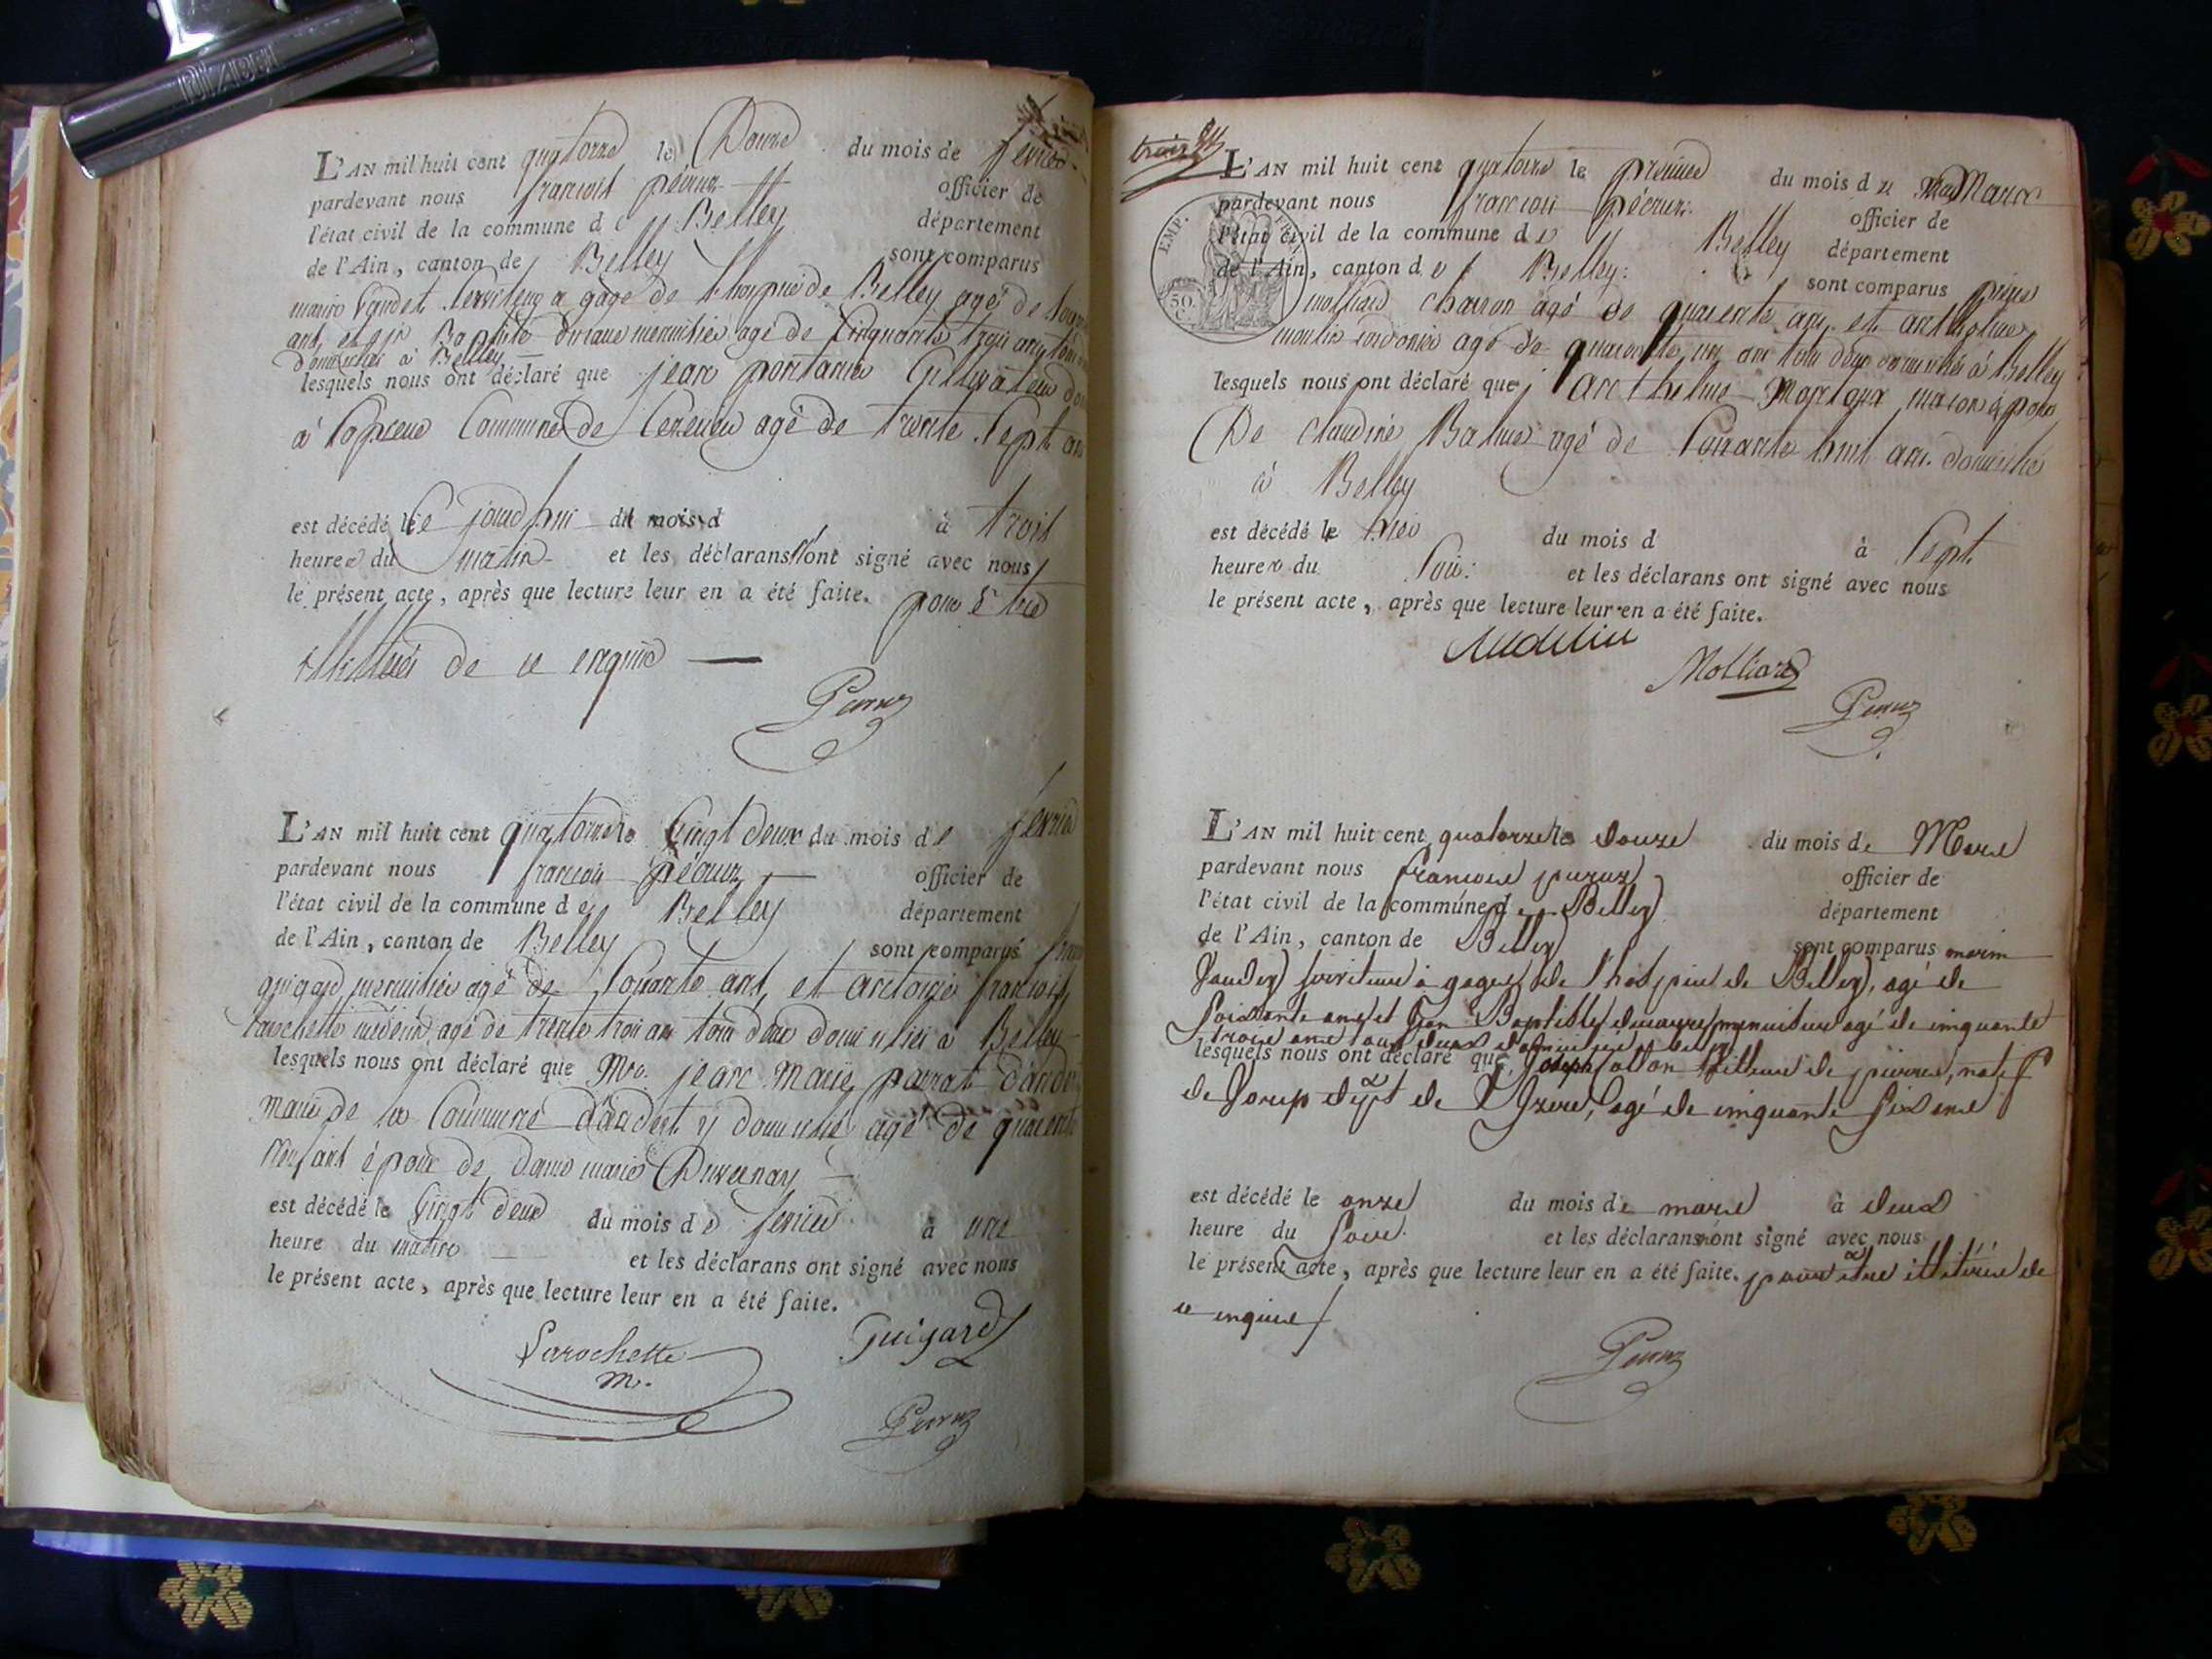 DIABEL
L'AN mil huit cent quatorze le Douze du mois de fevrier
pardevant nous francois peruz officier de
l'état civil de la commune de Belley département
de l'Ain, canton de Belley sont comparus
marin Vaudet serviteur a gage de l'hospice de Belley agé de soixante
ans et jn Baptiste ducaure menuisier agé de cinquante trois ans tous
domicilies à Belley
lesquels nous ont déclaré que jean pontanier Cultivateur
à Commune de Cezerieu agé de trente sept ans
est décédé le ce jourd'hui du mois d à trois
heures du matin et les déclarans n'ont signé avec nous
le présent acte, après que lecture leur en a été faite. pour etre
illitéré de ce enquis
Peruz
L'AN mil huit cent quatorze le vingt deux du mois de fevrier
pardevant nous francois péruz officier de
l'état civil de la commune de Belley département
de l'Ain, canton de Belley sont comparus
guigard menuisier agé de soixante ans et antoine francois
Larochette médecin agé de trente trois ans tous deux domicilies à Belley
lesquels nous ont déclaré que Mr. jean marie parrat d'andert
maire de la Commune d'andert y domicilié agé de quarente
neuf ans époux de dame marie Duvernay
est décédé le vingt deux du mois de fevrier à une
heure du matin et les déclarans ont signé avec nous
le présent acte, après que lecture leur en a été faite.
Larochette Guigard
m.
Peruz
trois
EMP. FRA.
50.
C.
L'AN mil huit cent quatorze le premier du mois de Mars
pardevant nous francois péruz officier de
l'état civil de la commune de Belley département
de l'Ain, canton de Belley sont comparus pierre
molliard charron agé de quarente ans et anthelme
moulin cordonier agé de quarente un an tous deux domicilies à Belley
lesquels nous ont déclaré que anthelme maçon époux
De claudine Balme agé de soixante huit ans domicilié
à Belley
est décédé le hier du mois d à sept
heures du soir et les déclarans ont signé avec nous
le présent acte, après que lecture leur en a été faite.
Molliard
Peruz
L'AN mil huit cent quatorze le douze du mois de Mars
pardevant nous francois peruz officier de
l'état civil de la commune de Belley département
de l'Ain, canton de Belley sont comparus marin
Vaudey serviteur à gages de l'hospice de Belley, agé de
soixante ans et Jean Baptiste ducaure menuisier agé de cinquante
trois ans tous deux domicilies a Belley
lesquels nous ont déclaré que Joseph tailleur de pierre, natif
de dept de l'Izere, agé de cinquante six ans
est décédé le onze du mois de mars à deux
heure du soir et les déclarans n'ont signé avec nous
le présent acte, après que lecture leur en a été faite. pour etre illitérés de
ce enquis
Peruz